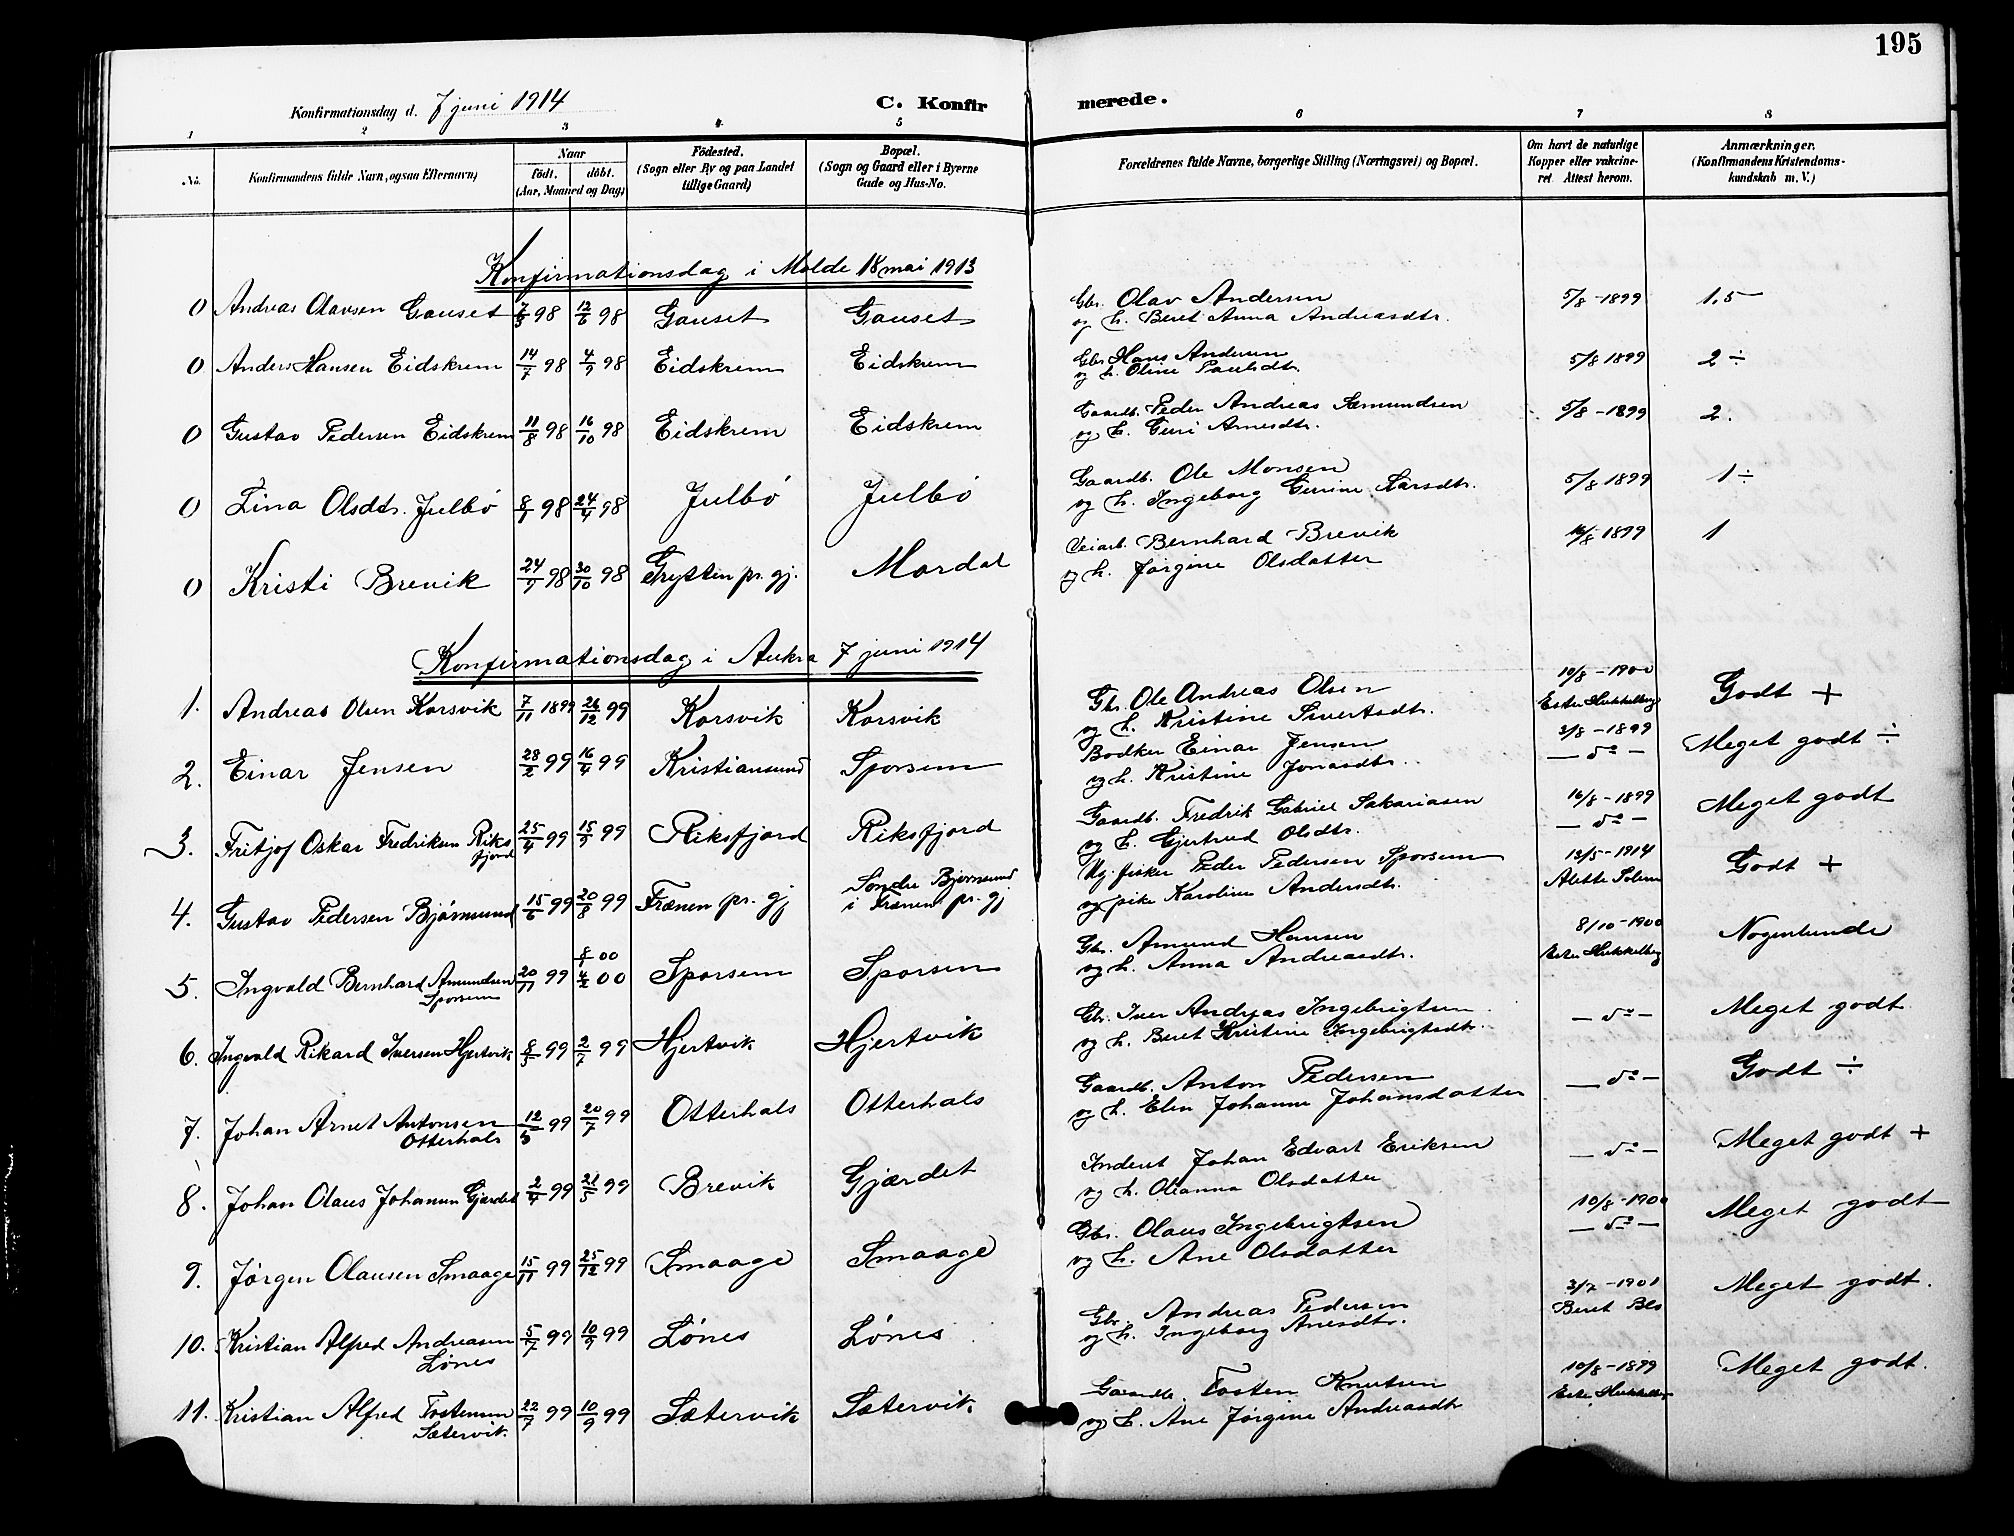 195
Konfirmationsdag d. 7 juni 1914 C. Konfirmerede.
1 2 3 4 5 6 7 8
No.
Konfirmandens fulde Navn, ogsaa Efternavn)
Naar
födt. döbt.
(Aar, Maaned og Dag)
Födested.
(Sogn eller By og paa Landet
tillige Gaard)
Bopæl.
(Sogn og Gaard eller i Byerne
Gade og Hus-No.
Forældrenes fulde Navne, borgerlige Stilling (Næringsvei) og Bopæl.
Om havt de naturlige
Kopper eller vakcine-
ret Attest herom.
Anmærkninger.
(Konfirmandens Kristendoms-
kundskab m. V.)
Konfirmationsdag i Molde 18 mai 1913
0 Andreas Olavsen Gauset 7/3 98 12/6 98 Gauset Gauset Gbr. Olav Andersen 5/8-1899 1.5
og h. Beret Anna Andreasdtr.
0 Anders Hansen Eidskrem 14/7 98 4/9 98 Eidskrem Eidskrem Gbr Hans Andersen 5/8 1899 2 ÷
og h. Oline Paulsdtr.
0 Gustav Pedersen Eidskrem 11/8 98 16/10 98 Eidskrem Eidskrem Gaardb. Peder Andreas Sæmundsen 5/8-1899 2.
og h. Guri Arnesdtr.
0 Lina Olsdtr. Julbö 98 24/4 98 Julbö Julbö Gaardb. Ole Monsen 5/8 1899 1 ÷
og h. Ingeborg
0 Kristi Brevik 24/9 98 30/10 98 Grytten pr. gj. Mordal Veiarb. Bernhard Brevik 1899 1
og h. Jørgine Olsdatter
Konfirmationsdag i Aukra 7 juni 1914
1. Andreas Olsen Korsvik 7/11 1899 26/12 99 Korsvik Korsvik Gbr. Ole Andreas Olsen 10/8-1900 Godt +
og h. Kristine Sivertsdtr. Ester Hukkelberg
2. Einar Jensen 28/2 99 16/4 99 Kristiansund Sporsem Bödker Einar Jensen 3/8-1899 Meget godt ÷
og h. Kristine Jonasdtr. — do —
3. Fritjof Oskar Fredriksen Riksfjord 25/4 99 15/9 99 Riksfjord Riksfjord Gaardb. Fredrik Gabriel Sakariasen 16/8-1899 Meget godt
og h. Gjertrud Olsdtr. — do —
4. Gustav Pedersen Bjørnsund 15/6 99 20/8 99 Frænen pr. gj Søndre Bjørnsund Ug. fisker Peder Pedersen Sporsem 13/5-1914 Godt +
i Frænen pr. gj og pike Karoline Andersdtr. Alette Solem
5. Ingvald Bernhard Amundsen 20/11 99 00 Sporsem Sporsem Gbr. Amund Hansen 8/10-1900 Nogenlunde
Sporsem 4/2 00 og h. Anna Andreasdtr. Ester Hukkelberg
6. Ingvald Rikard Iversen Hjertvik 99 2/7 99 Hjertvik Hjertvik Gbr. Iver Andreas Ingebrigtsen — do — Meget godt.
og h. Beret Kristine Ingebrigtsdtr.
7. Johan Arnet Antonsen 12/5 99 20/7 99 Otterhals Otterhals Gaardb. Anton Pedersen — do — Godt ÷
Otterhals og h. Elen Johanne Johansdatter
8. Johan Olaus Johansen Gjærdet 2/4 99 21/5 99 Brevik Gjærdet Inderst Johan Edvart Eriksen — do — Meget godt +
og h. Olianna Olsdatter
9. Jörgen Olausen Smaage 15/11 99 25/12 99 Smaage Smaage Gbr. Olaus Ingebrigtsen 10/8-1900 Meget godt
og h. Ane Olsdatter — do —
10. Kristian Alfred Andreasen 5/7 99 10/9 99 Lönes Lönes Gbr. Andreas Pedersen 3/7-1901 Meget godt.
Lönes og h. Ingeborg Anesdtr. Beret Blø
11. Kristian Alfred Tostensen 22/7 99 10/9 99 Sætervik Sætervik Gaardb. Tosten Knutsen 10/8-1899 Meget godt.
Sætervik og h. Ane Jörgine Andreasdtr Ester Hukkelberg